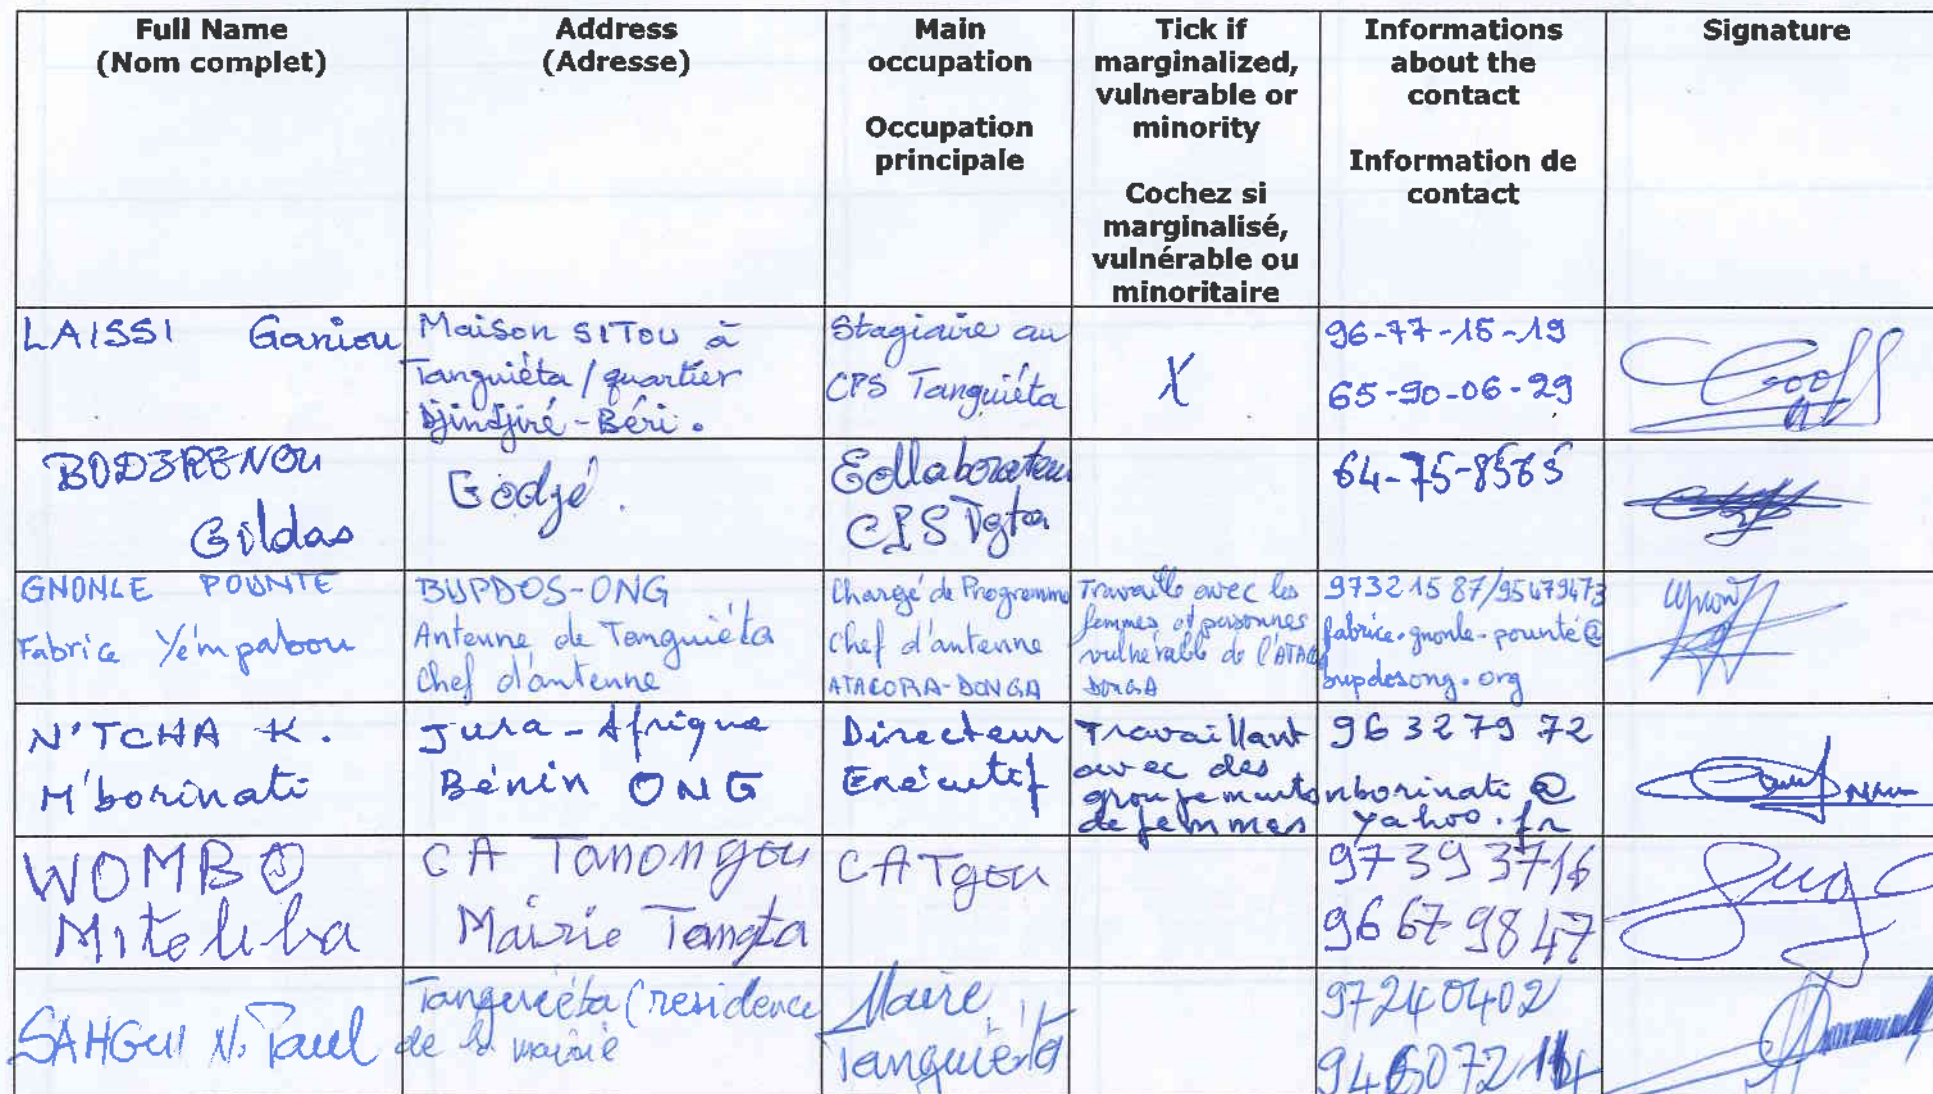 Full Name
(Nom complet)
Address
(Adresse)
Main
occupation
Occupation
principale
Tick if
marginalized,
vulnerable or
minority
Cochez si
marginalisé,
vulnérable ou
minoritaire
Informations
about the
contact
Information de
contact
Signature
LAISSI Ganiou
Maison SITOU à
Tanguiéta / quartier
Djindjiré-Béri.
Stagiaire au
CPS Tanguiéta
X
96-77-15-19
65-90-06-29
Gildas
Godjé.
Collaborateur
CPS Tgta
64-75-8565
GNONLE POUNTE
Fabrice Yémpabou
BUPDOS-ONG
Antenne de Tanguiéta
Chef d'antenne
Chargé de Programme
Chef d'antenne
ATACORA-DONGA
Travaille avec les
femmes et personnes
vulnérable de l'ATACO
DONGA
97321587/95479473
fabrice.gnonle-pounté@
bupdosong.org
N'TCHA K.
M'borinati
Jura-Afrique
Bénin ONG
Directeur
Exécutif
Travaillant
avec des
groupements
de femmes
96327972
nborinati@
yahoo.fr
WOMBO
CA Tanongou
Mairie Tangta
CA Tgou
97393716
96679847
SAHGUI N. Paul
Tanguiéta (residence
de la mairie
Maire
Tanguiéta
97240402